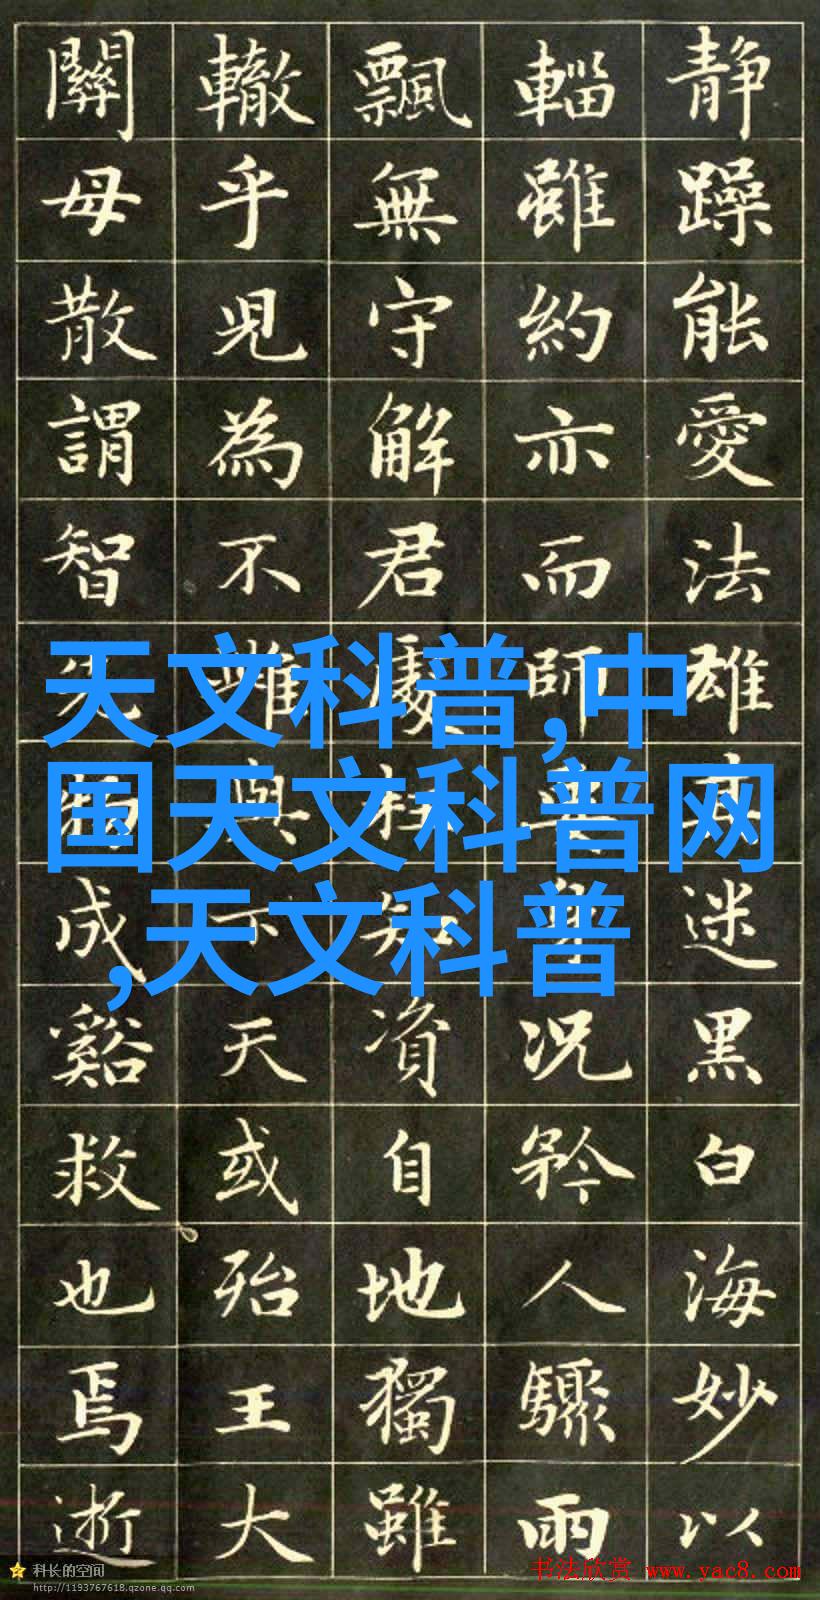 静躁能愛法雄迷黑白海妙以
輜雖約亦而師身況矜人驟雨
飄無守解君處柱知資自地獨雖
轍乎兒為不雌與天或殆王大
關母散謂智先物成谿救也焉逝
天文科普,中
国天文科普网
,天文科普
科长的空间
http://1193767618.qzone.qq.com
书法欣赏 www.yac8.com